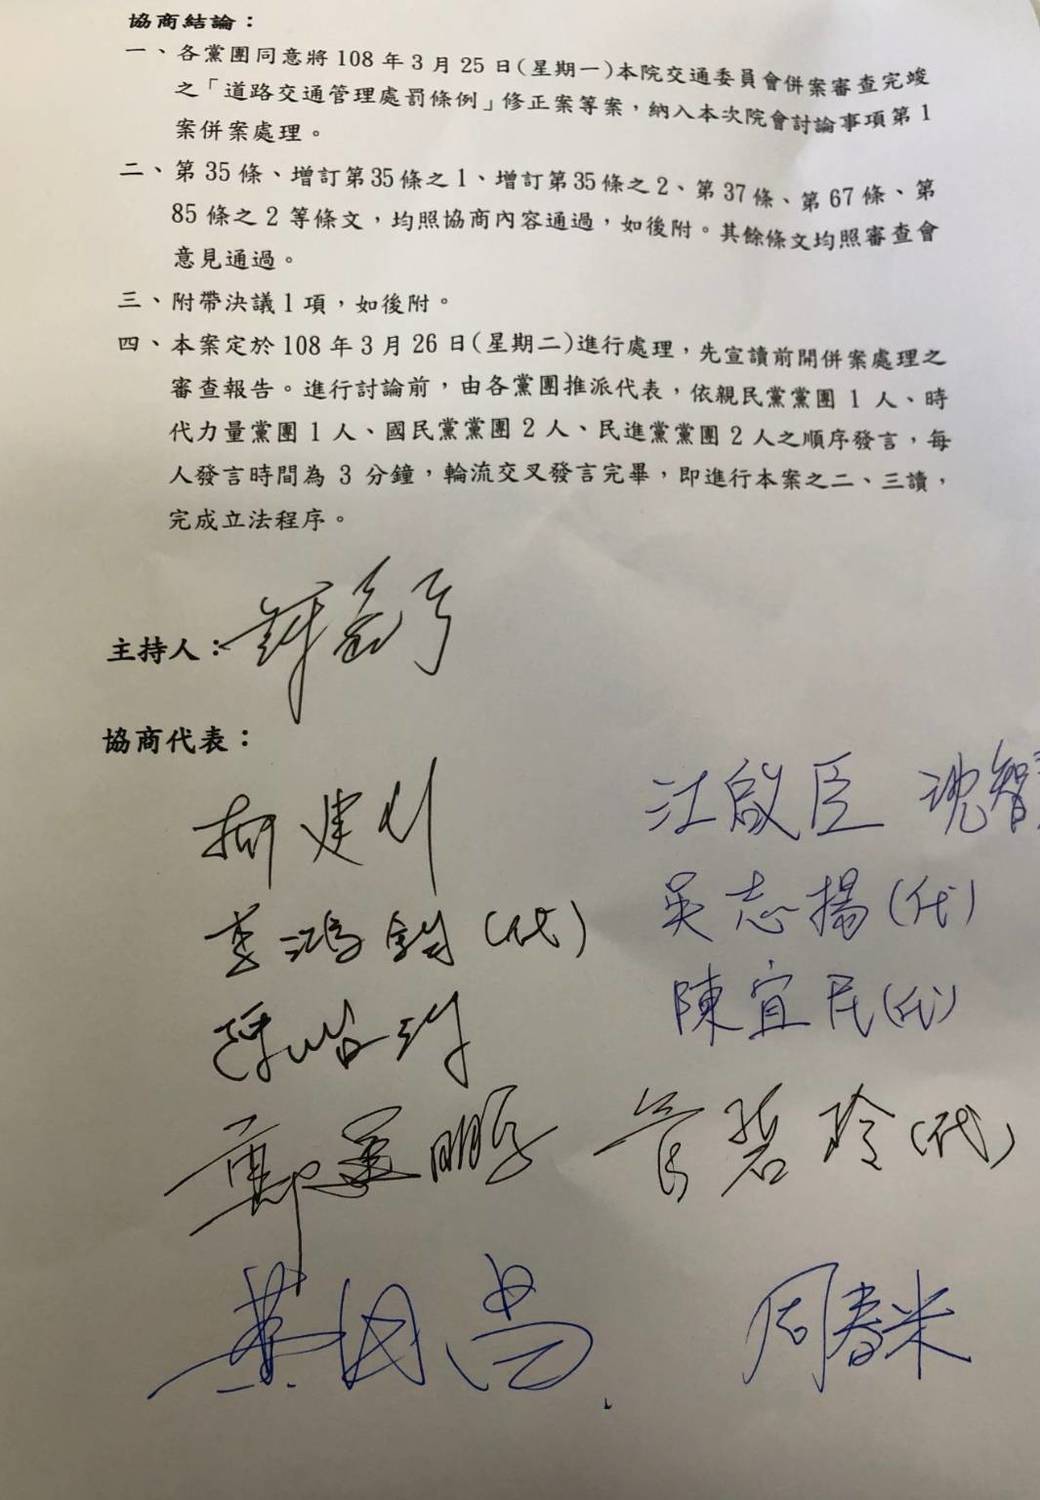 協商結論：
一、各黨團同意將108年3月25日(星期一)本院交通委員會併案審查完竣
之「道路交通管理處罰條例」修正案等案，納入本次院會討論事項第1
案併案處理。
二、第35條、增訂第35條之1、增訂第35條之2、第37條、第67條、第
85條之2等條文，均照協商內容通過，如後附。其餘條文均照審查會
意見通過。
三、附帶決議1項，如後附。
四、本案定於108年3月26日(星期二)進行處理，先宣讀前開併案處理之
審查報告。進行討論前，由各黨團推派代表，依親民黨黨團1人、時
代力量黨團1人、國民黨黨團2人、民進黨黨團2人之順序發言，每
人發言時間為3分鐘，輪流交叉發言完畢，即進行本案之二、三讀，
完成立法程序。
主持人：
協商代表：
柯建 江啟臣 沈智
李鴻鈞(代) 吳志揚(代)
陳宜民(代)
鄭運鵬 管碧玲(代)
黃國昌 周春米